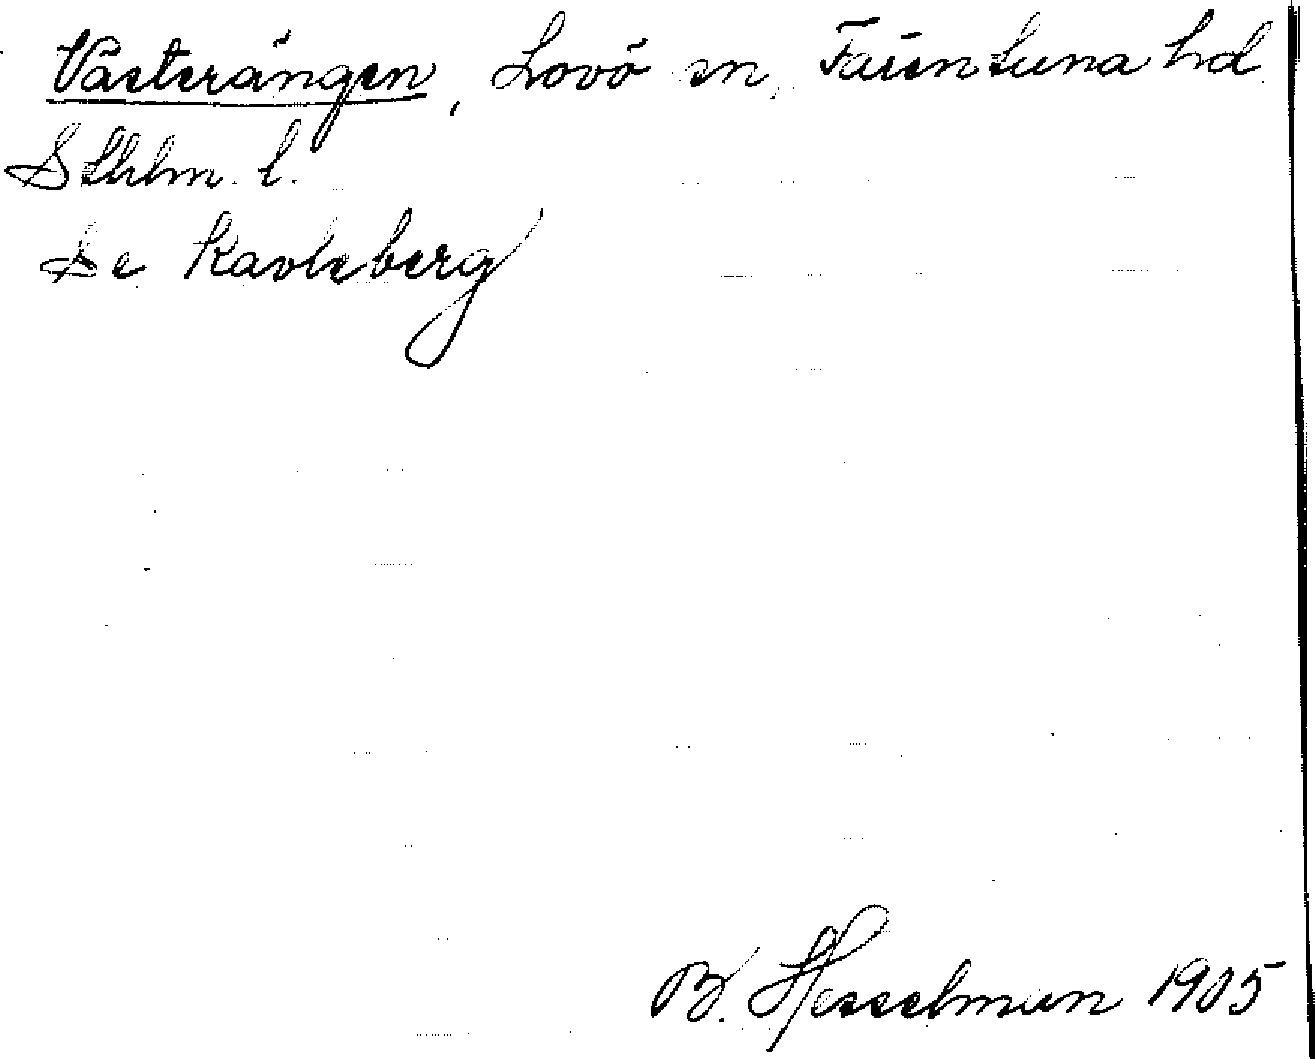 Västerängen, Lovö sn, Färentuna hd
Sthlm. l.
Se Kavleberg
B. Hesselman 1905